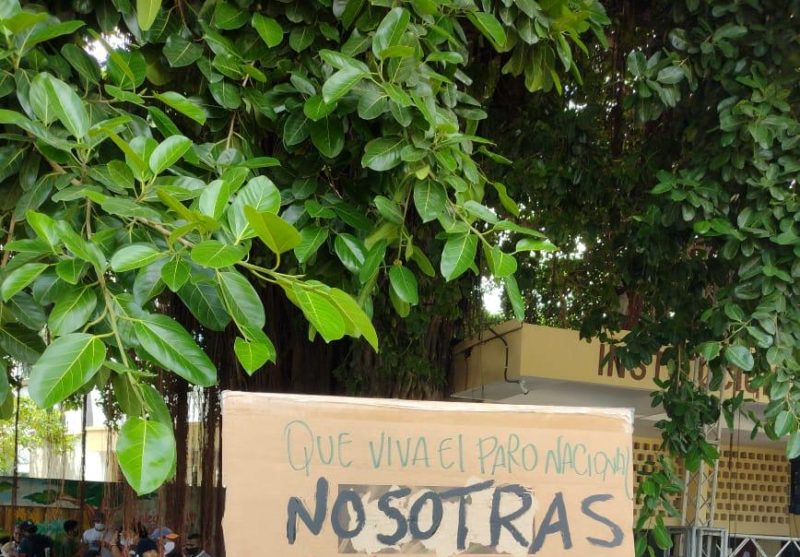 QUE VIVA El PARO NACIONAl
NOSOTRAS